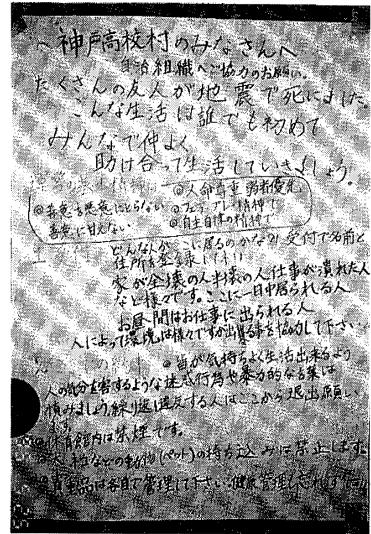 神戸高校村のみなさんへ
自治組織へご協力のお願い。
たくさんの友人が地震で死にました。
こんな生活は誰でも初めて
みんなで仲よく
助け合って生活していきましょう。
◎人命尊重 弱者優先
◎善意を悪意にとらない ◎フェアプレイ精神で
善意に甘えない ◎自主自律の精神で
どんな人がここに居るのかな? 受付で名前と
住所を登録して下さい
家が全壊の人半壊の人仕事が潰れた人
など様々です。ここに一日中居られる人
お昼間はお仕事に出られる人
人によって環境は様々ですが出来る事を協力して下さい
◎皆が気持ちよく生活出来るよう
人の気分を害するような迷惑行為や暴力的なる事は
慎みましょう。繰り返し違反する人はここから退出願い
ます
体育館内は禁煙です。
犬、猫などの動物(ペット)の持ち込みは禁止します。
貴重品は各自で管理して下さい。健康管理も忘れずに